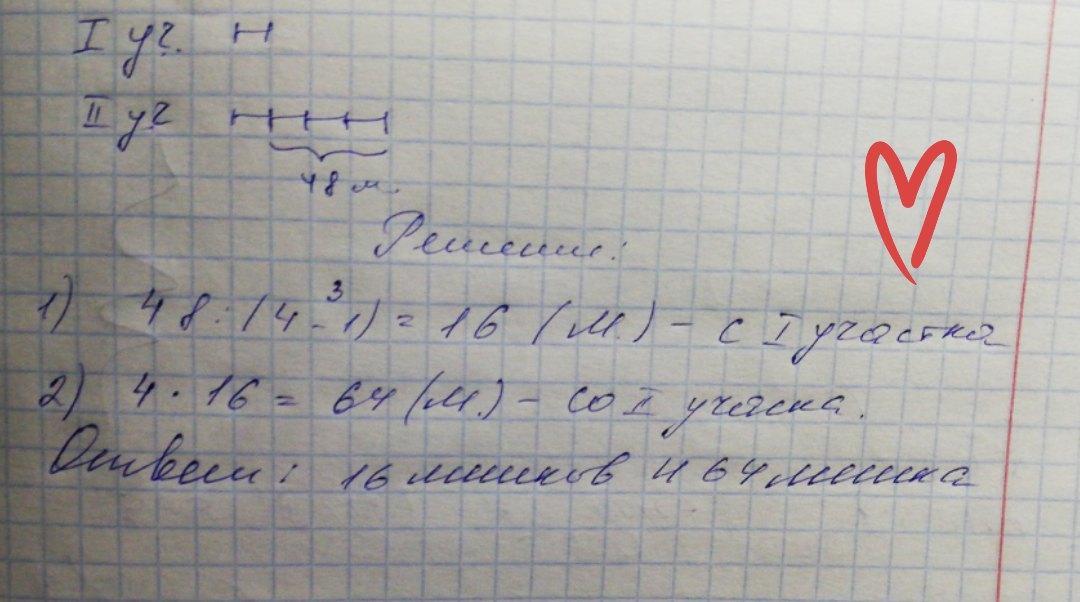 I уч.
II уч
48 м.
Решение:
1) 48:(4-1)=16 (М.) - с I участка
3
2) 4·16=64 (М.) - со I учаска.
Ответ: 16 мешков и 64 мешка